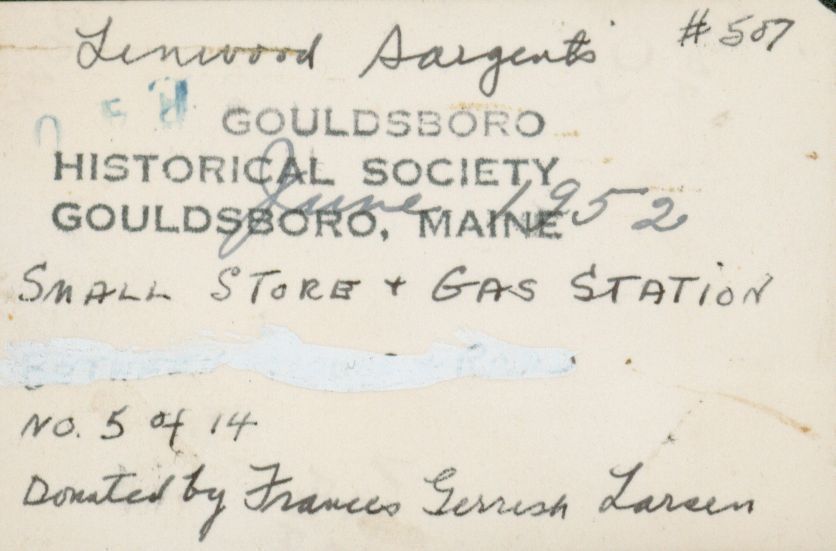 Linwood Sargent's #507
GOULDSBORO
HISTORICAL SOCIETY
GOULDSBORO, MAINE
June 1952
SMALL STORE + GAS STATION
NO. 5 of 14
Donated by Frances Gerrish Larsen